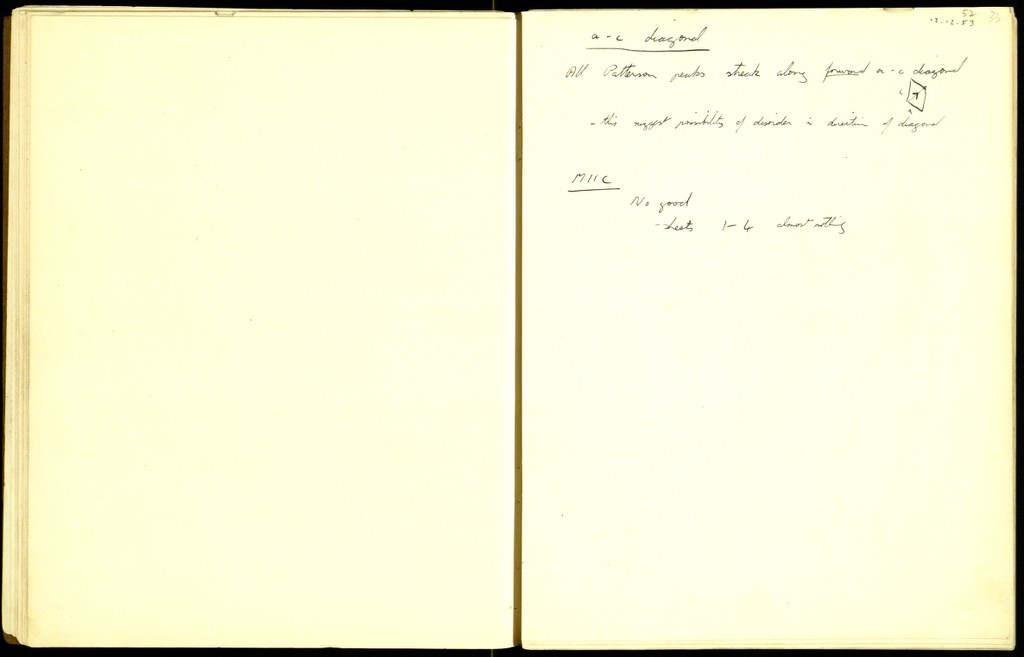 52 33
17.12.53
a - c diagonal
All Patterson peaks streak along forward a - c diagonal
c
a
- this suggest possibility of disorder in direction of diagonal
M11C
No good
- sheets 1-4 almost nothing